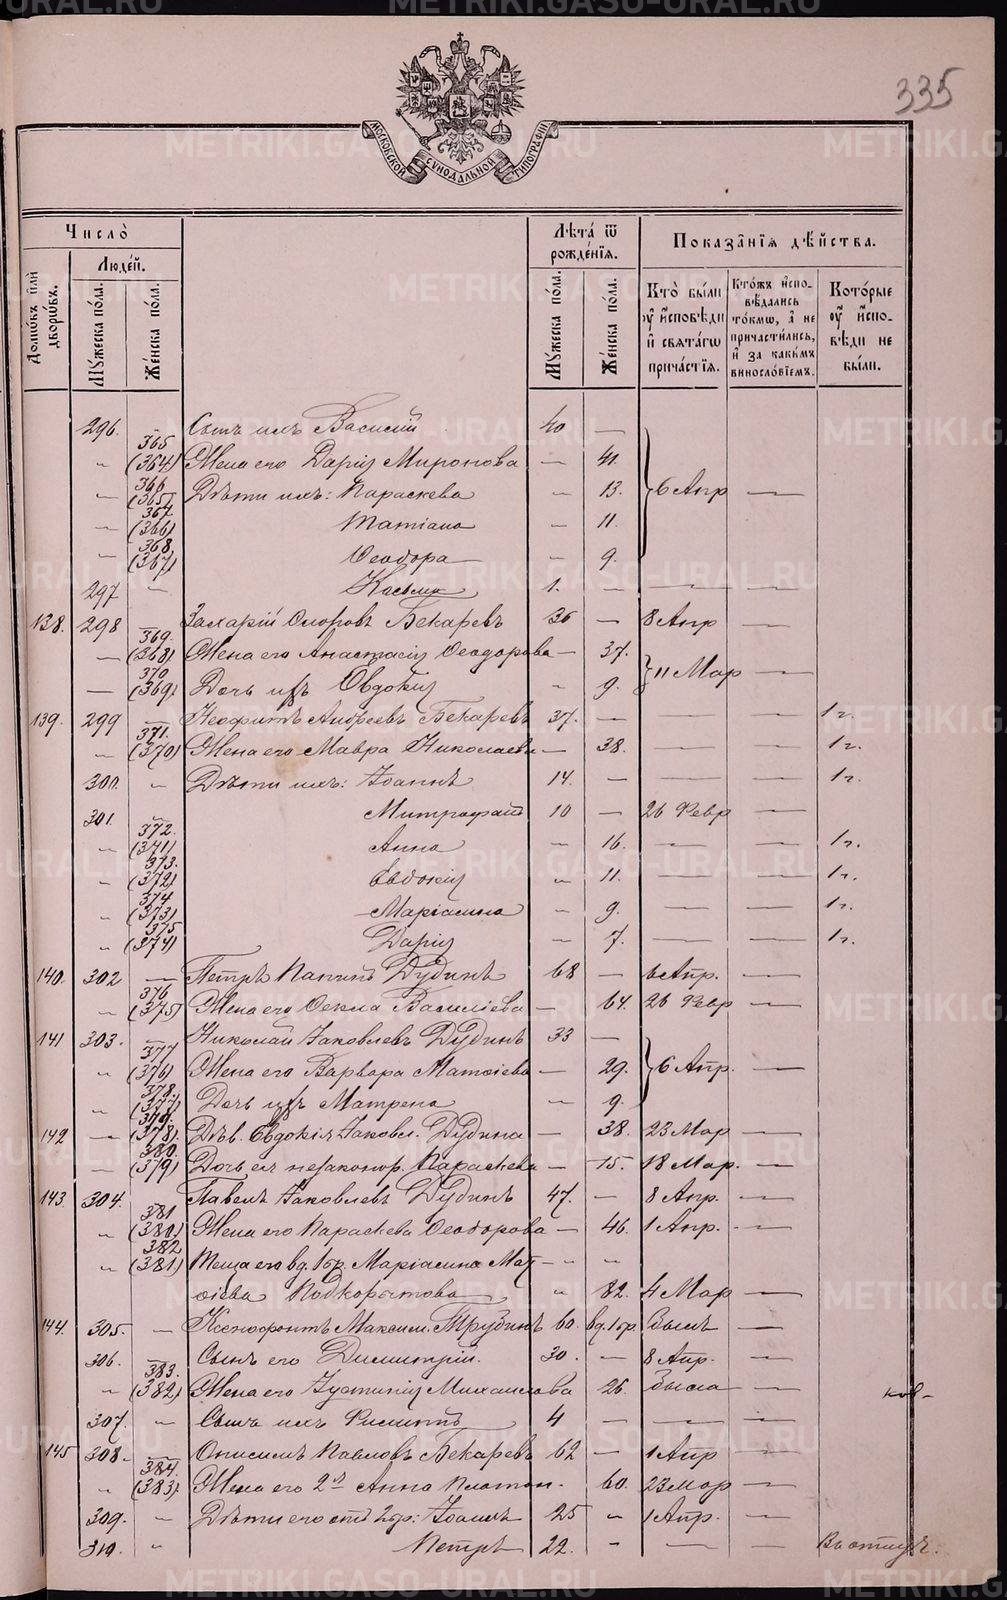 METRIKI.GASO-URAL.RU
335
МОСКОВСКОЙ СѴНОДАЛЬНОЙ ТИПОГРАФІИ
Число̀
Людéй.
Домóвъ и҆лѝ дворóвъ.
Мꙋ́жеска по́ла.
Же́нска по́ла.
Лѣ́та ѿ рожде́нїѧ.
Мꙋ́жеска по́ла.
Же́нска по́ла.
Показа̑нїѧ дѣ́йства.
Кто̀ бы́ли ᲂу҆ и҆́сповѣди и҆ свѧта́гѡ прича́стїѧ.
Кто́жъ и҆спо-вѣ́дались то́кмѡ, а҆ не причасти́лись, и҆ за каки́мъ винослѡ́вїемъ.
Кото́рые ᲂу҆ и҆́спо-вѣди не бы́ли.
296. Сынъ ихъ Василій 40 —
„ 365 (364) Жена его Дарія Миронова — 41.
„ 366 (365) Дѣти ихъ: Параскева „ 13. } 6 Апр —
„ 367 (366) Татіана — 11.
„ 368 (367) Ѳеодора — 9.
297 — Косьма 1. — — —
138. 298 — Захарій Егоровъ Бекаревъ 36 — 8 Апр —
— 369. (368) Жена его Анастасія Ѳеодорова — 37.
— 370 (369). Дочь ихъ Евдокія „ 9. } 11 Мар —
139. 299 — Неофитъ Андреевъ Бекаревъ 37. — — — 1 г.
„ 371. (370) Жена его Мавра Николаева — 38. — — 1 г.
300. „ Дѣти ихъ: Іоаннъ 14. — — — 1 г.
301. — Митрофанъ 10 — 26 Февр —
„ 372. (371) Анна „ 16. — — 1 г.
„ 373. (372) Евдокія „ 11. — — 1 г.
„ 374 (373) Маріамна „ 9. — — 1 г.
„ 375 (374) Дарія — 7. — — 1 г.
140. 302 — Петръ Дудинъ 68 — 6 Апр. —
„ 376 (375) Жена его Ѳекла Василіева — 64. 26 Февр —
141 303. — Николай Іаковлевъ Дудинъ 33 —
„ 377 (376) Жена его Варвара Матѳіева — 29. } 6 Апр. —
„ 378. (377) Дочь ихъ Матрена „ 9.
142 — 379. (378). Дѣв. Евдокія Іаковл. Дудина — 38. 23 Мар —
— 380. (379) Дочь ея незаконор. Параскева — 15. 18 Мар. —
143. 304. — Павелъ Іаковлевъ Дудинъ 47. — 8 Апр. —
„ 381 (380) Жена его Параскева Ѳеодорова — 46. 1 Апр. —
„ 382 (381) Теща его вд. 1 бр. Маріамна Мат- „ „
ѳіева Подкорытова „ 82. 4 Мар —
144. 305. — Ксенофонтъ Максим. Трубинъ 60. вд. 1 бр былъ —
306. — Сынъ его Димитрій. 30. — 8 Апр. —
„ 383. (382) Жена его Іустинія Михаилова 26. была —
307. „ Сынъ ихъ Филиппъ 4 — — —
145 308. — Онисимъ Павловъ Бекаревъ 62 — 1 Апр —
„ 384. (383). Жена его 2ая Анна Платон. 60. 23 Мар —
309. „ Дѣти его отъ 2 бр: Іоаннъ 25 „ 1 Апр. —
310. „ Петръ 22. — — — Въ отлуч.